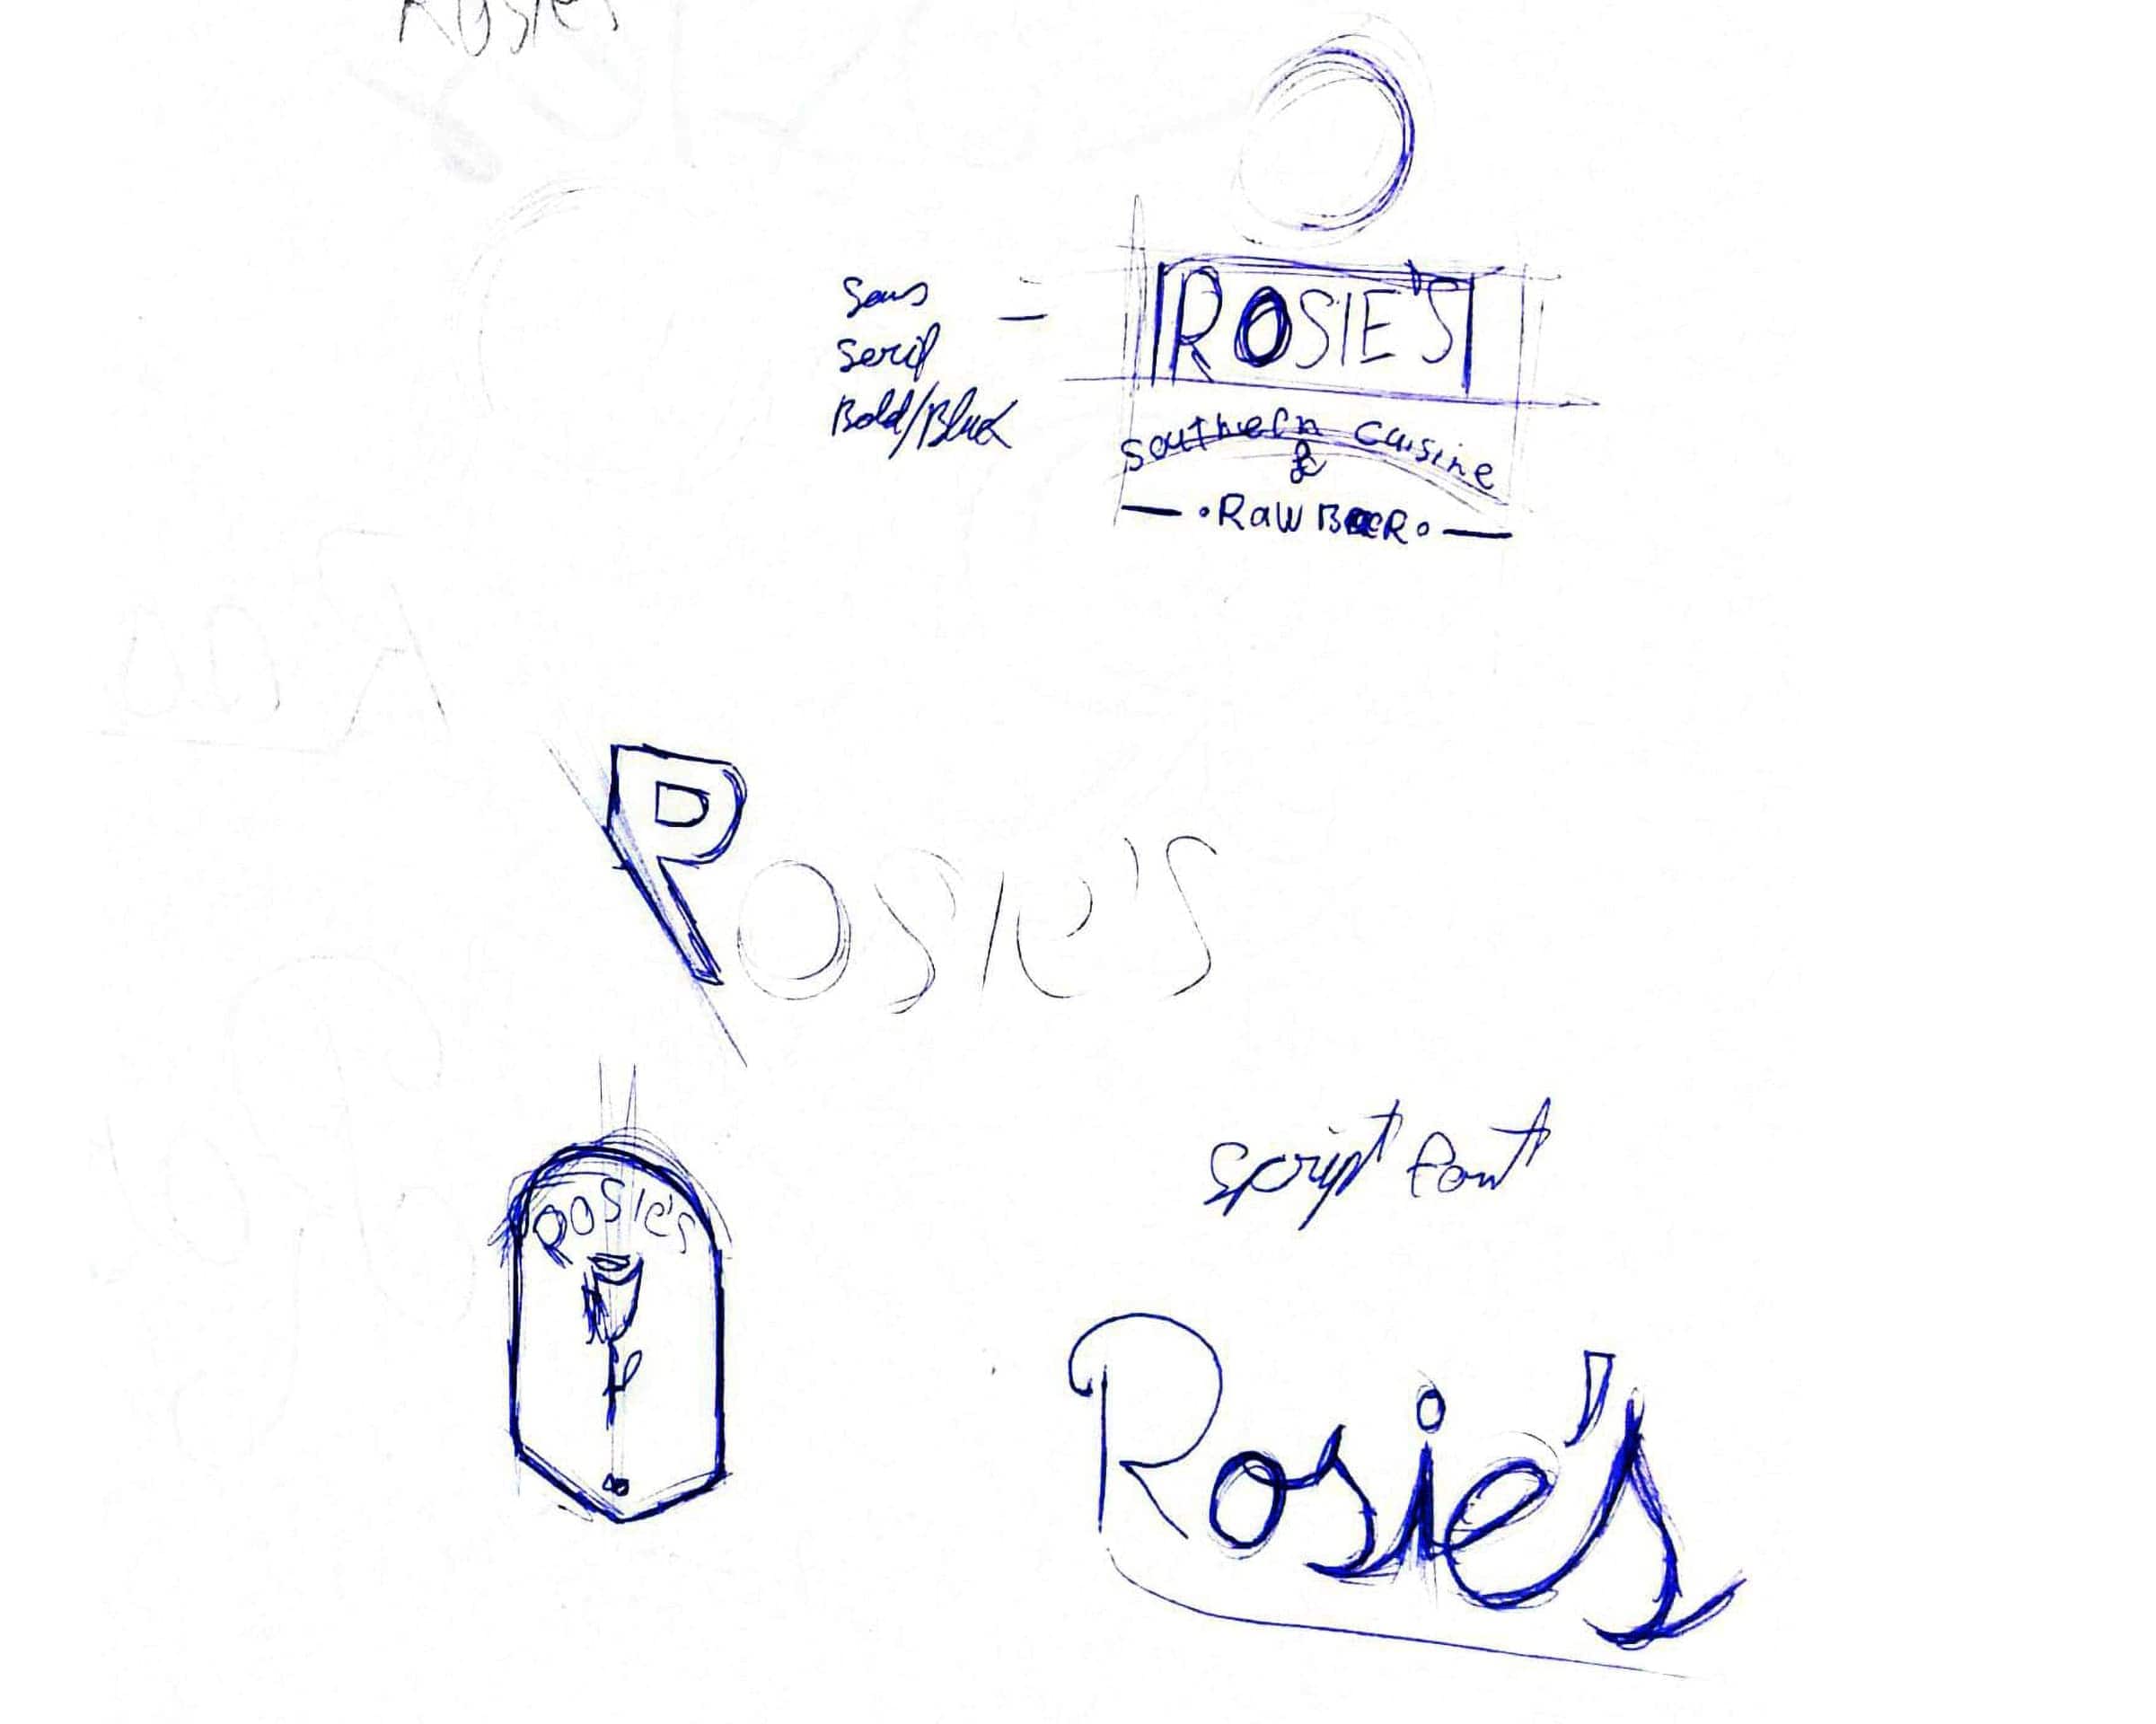 Rosie's
Sans
Serif
Bold/Black
ROSIE'S
Southern Cuisine
&
RAW BAR
Rosie's
Rosie's
script font
Rosie's